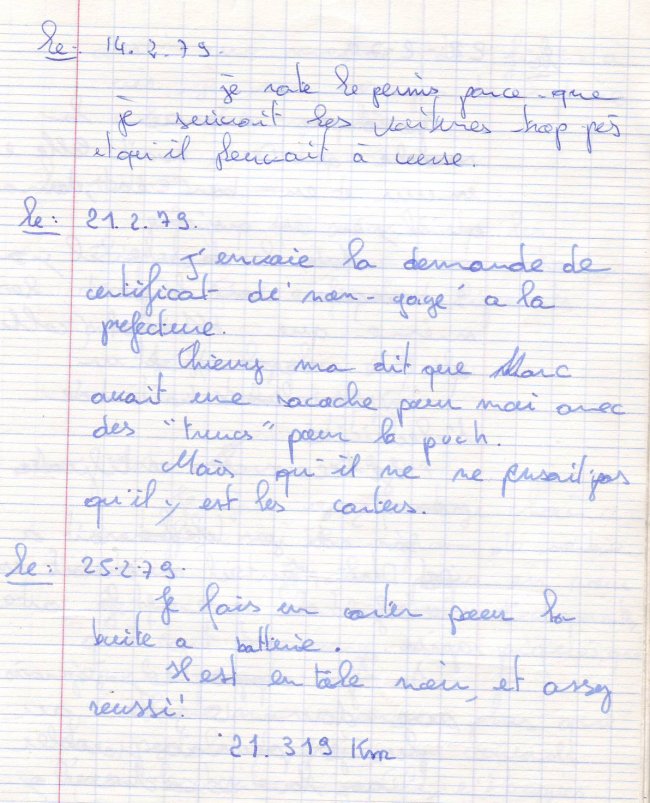 le: 14.2.79.
je rate le permis parce-que
je suivait les voitures trop près
et qu'il pleuvait à verse.
le: 21.2.79.
J'envoie la demande de
certificat de "non-gage" a la
prefecture.
Thierry ma dit que Marc
avait une sacoche pour moi avec
des "trucs" pour la puch.
Mais qu'il ne ne pensait pas
qu'il y est les carters.
le: 25.2.79.
Je fais un carter pour la
boite a batterie.
Il est en tôle noir, et assez
reussi!
21.319 Km